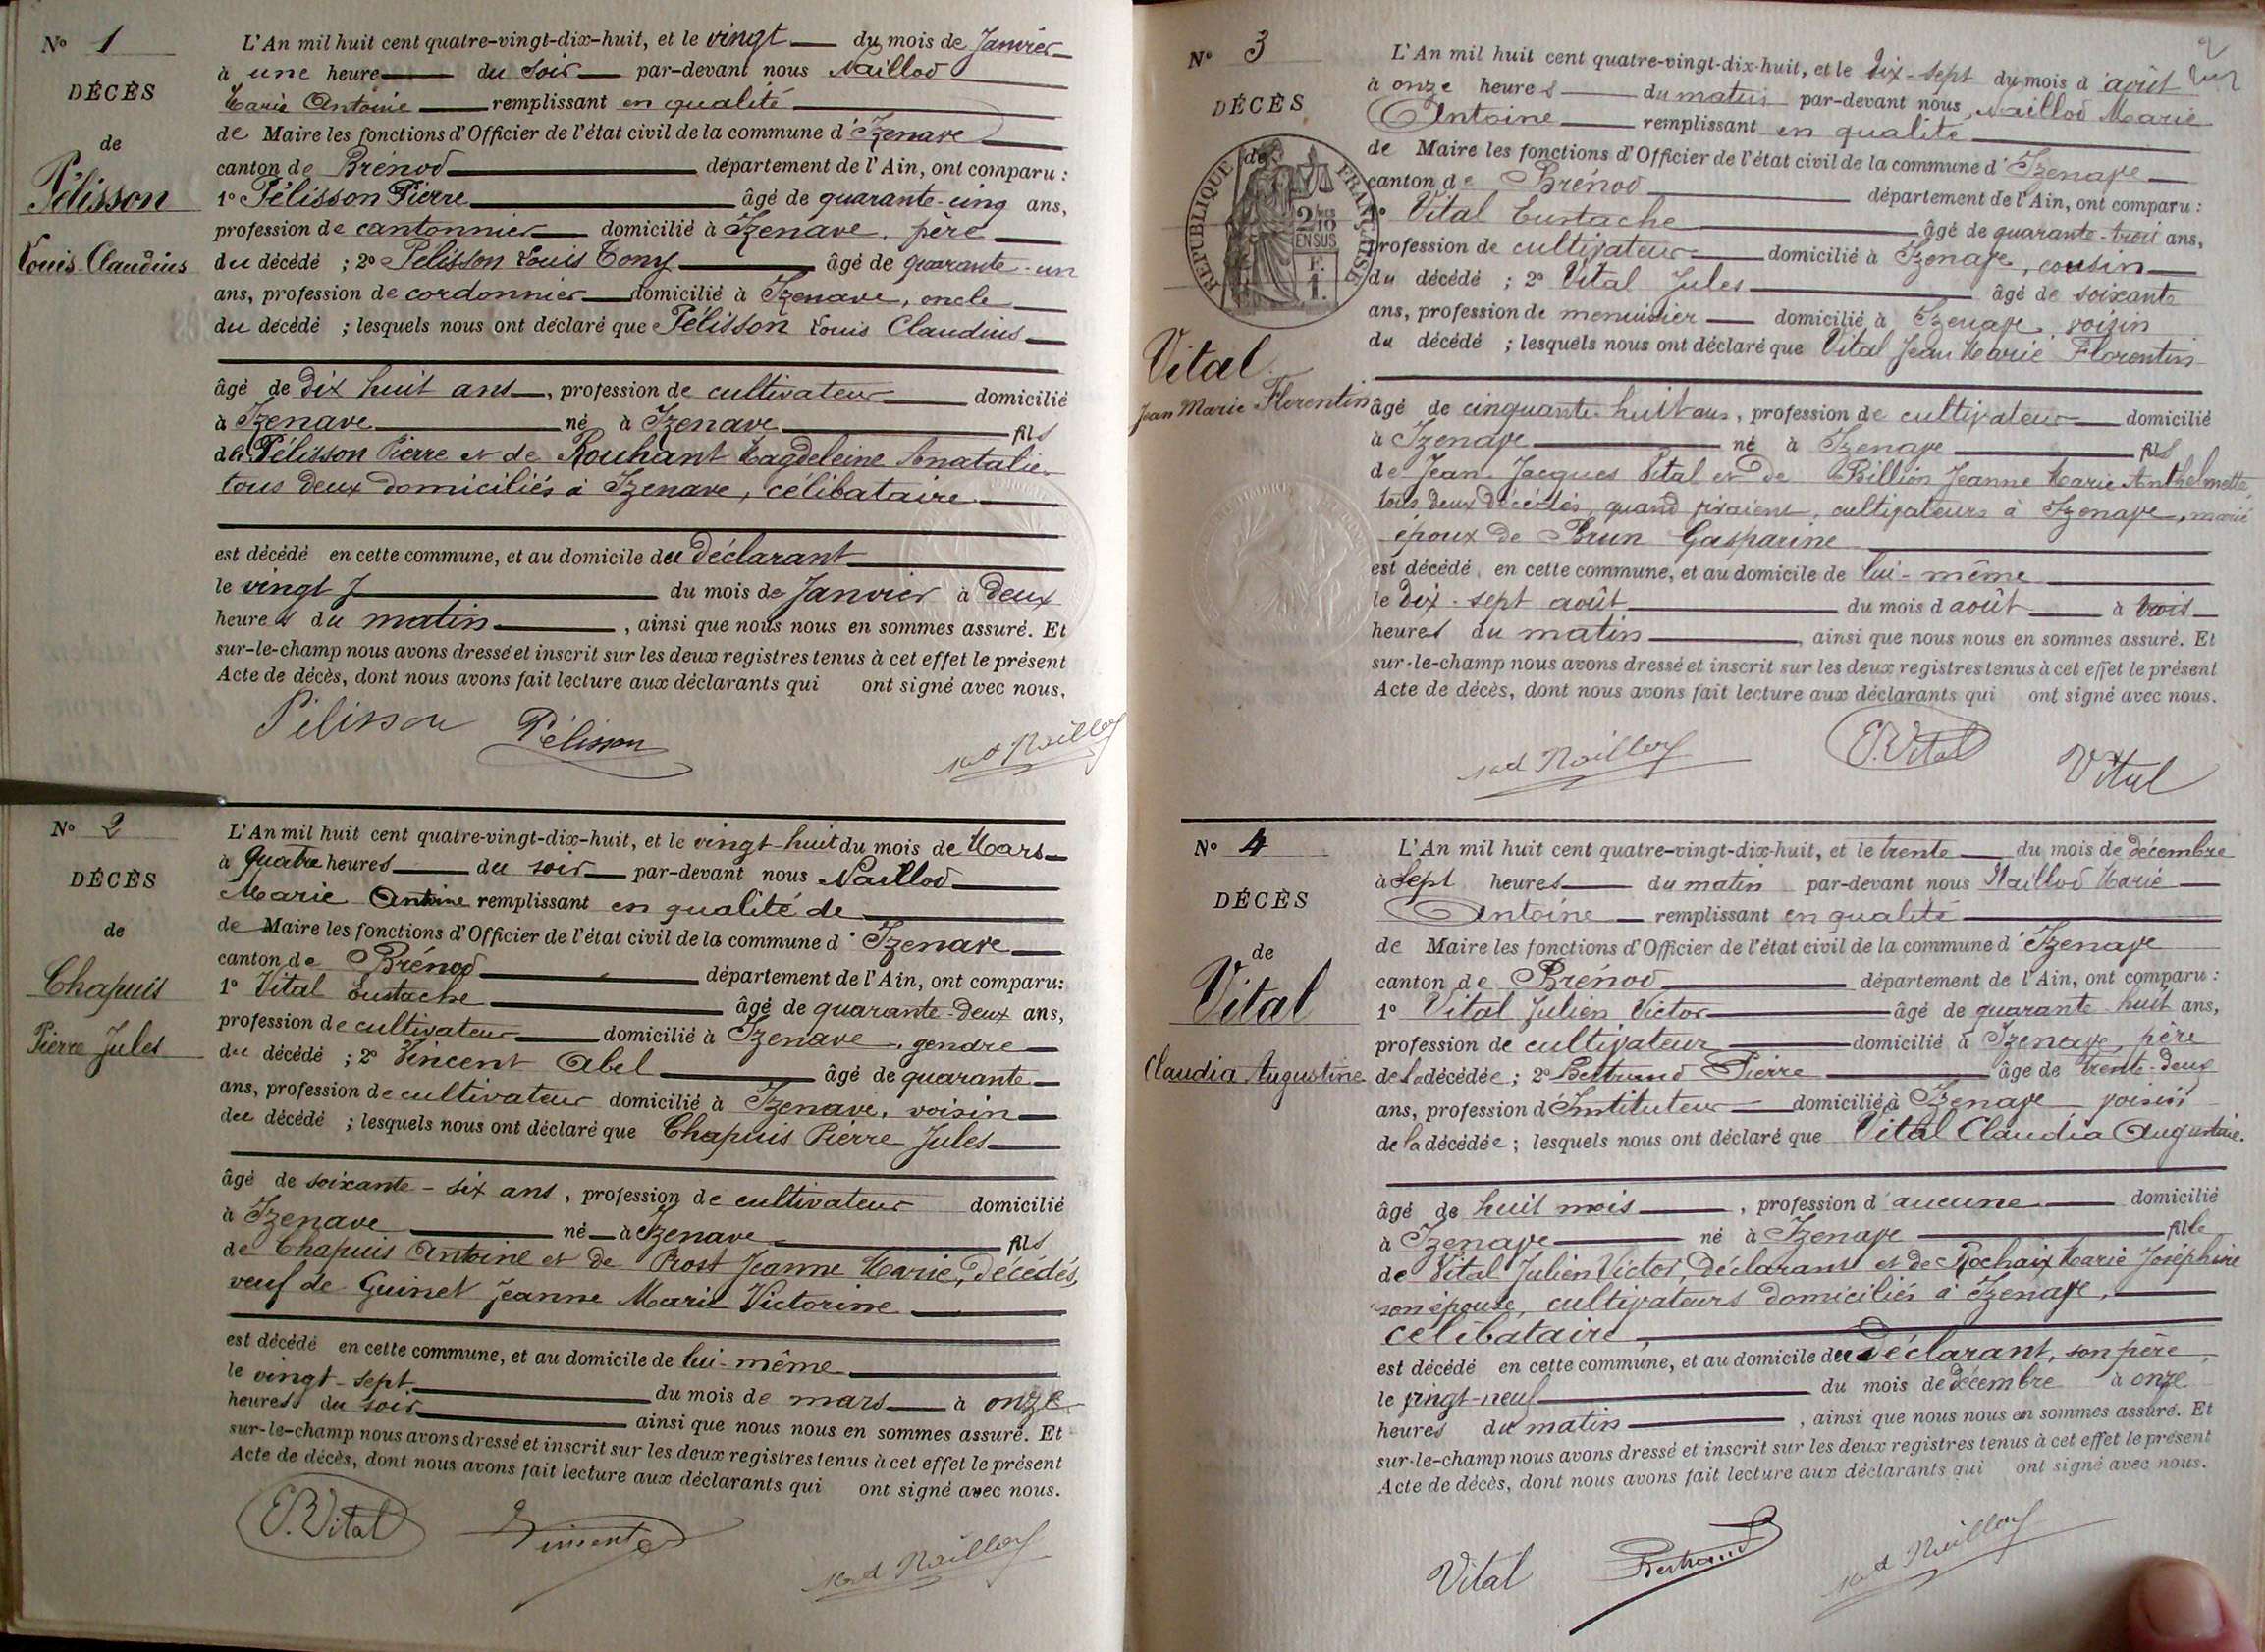 N° 1
DÉCÈS
de
Pélisson
Louis Claudius
L'An mil huit cent quatre-vingt-dix-huit, et le vingt du mois de Janvier
à une heure du soir par-devant nous Naillod
Marie Antoine remplissant en qualité
de Maire les fonctions d'Officier de l'état civil de la commune d'Izenave
canton de Brénod département de l'Ain, ont comparu :
1° Pélisson Pierre âgé de quarante-cinq ans,
profession de cantonnier domicilié à Izenave, père
du décédé ; 2° Pélisson Louis Tony âgé de quarante-un
ans, profession de cordonnier domicilié à Izenave, oncle
du décédé ; lesquels nous ont déclaré que Pélisson Louis Claudius
âgé de dix huit ans, profession de cultivateur domicilié
à Izenave né à Izenave fils
de Pélisson Pierre et de Rouhant Magdeleine Anatalie
tous deux domiciliés à Izenave, célibataire.
est décédé en cette commune, et au domicile du déclarant
le vingt du mois de Janvier à deux
heures du matin, ainsi que nous nous en sommes assuré. Et
sur-le-champ nous avons dressé et inscrit sur les deux registres tenus à cet effet le présent
Acte de décès, dont nous avons fait lecture aux déclarants qui ont signé avec nous.
Pélisson Pélisson Naillod
N° 2
DÉCÈS
de
Chapuis
Pierre Jules
L'An mil huit cent quatre-vingt-dix-huit, et le vingt-huit du mois de Mars
à quatre heures du soir par-devant nous Naillod
Marie Antoine remplissant en qualité de
de Maire les fonctions d'Officier de l'état civil de la commune d'Izenave
canton de Brénod département de l'Ain, ont comparu:
1° Vital Eustache âgé de quarante-deux ans,
profession de cultivateur domicilié à Izenave, gendre
du décédé ; 2° Vincent Abel âgé de quarante
ans, profession de cultivateur domicilié à Izenave, voisin
du décédé ; lesquels nous ont déclaré que Chapuis Pierre Jules
âgé de soixante-six ans, profession de cultivateur domicilié
à Izenave né à Izenave fils
de Chapuis Antoine et de Prost Jeanne Marie, décédés,
veuf de Guinet Jeanne Marie Victorine
est décédé en cette commune, et au domicile de lui-même
le vingt-sept du mois de mars à onze
heures du soir ainsi que nous nous en sommes assuré. Et
sur-le-champ nous avons dressé et inscrit sur les deux registres tenus à cet effet le présent
Acte de décès, dont nous avons fait lecture aux déclarants qui ont signé avec nous.
E. Vital Vincent Naillod
N° 3
DÉCÈS
de
RÉPUBLIQUE FRANÇAISE
2/10
EN SUS
Vital
Jean Marie Florentin
L'An mil huit cent quatre-vingt-dix-huit, et le dix-sept du mois d'août
à onze heures du matin par-devant nous, Naillod Marie
Antoine remplissant en qualité
de Maire les fonctions d'Officier de l'état civil de la commune d'Izenave
canton de Brénod département de l'Ain, ont comparu :
1° Vital Eustache âgé de quarante-trois ans,
profession de cultivateur domicilié à Izenave, cousin
du décédé ; 2° Vital Jules âgé de soixante
ans, profession de menuisier domicilié à Izenave, voisin
du décédé ; lesquels nous ont déclaré que Vital Jean Marie Florentin
âgé de cinquante-huit ans, profession de cultivateur domicilié
à Izenave né à Izenave fils
de Jean-Jacques Vital et de Billion Jeanne Marie Anthelmette,
tous deux décédés, quand vivaient, cultivateurs à Izenave, marié
époux de Brun Gasparine
est décédé en cette commune, et au domicile de lui-même
le dix-sept août du mois d août à trois
heures du matin, ainsi que nous nous en sommes assuré. Et
sur-le-champ nous avons dressé et inscrit sur les deux registres tenus à cet effet le présent
Acte de décès, dont nous avons fait lecture aux déclarants qui ont signé avec nous.
Naillod E. Vital Vital
N° 4
DÉCÈS
de
Vital
Claudia Augustine
L'An mil huit cent quatre-vingt-dix-huit, et le trente du mois de décembre
à sept heures du matin par-devant nous Naillod Marie
Antoine remplissant en qualité
de Maire les fonctions d'Officier de l'état civil de la commune d'Izenave
canton de Brénod département de l'Ain, ont comparu :
1° Vital Julien Victor âgé de quarante-huit ans,
profession de cultivateur domicilié à Izenave, père
de la décédée ; 2° Bertrand Pierre âgé de trente-deux
ans, profession d'Instituteur domicilié à Izenave voisin
de la décédée ; lesquels nous ont déclaré que Vital Claudia Augustine.
âgé de huit mois, profession d'aucune domicilié
à Izenave né à Izenave fille
de Vital Julien Victor, déclarant et de Rochaix Marie Joséphine
son épouse, cultivateurs domiciliés à Izenave,
célibataire
est décédé en cette commune, et au domicile du déclarant, son père,
le vingt-neuf du mois de décembre à onze
heures du matin, ainsi que nous nous en sommes assuré. Et
sur-le-champ nous avons dressé et inscrit sur les deux registres tenus à cet effet le présent
Acte de décès, dont nous avons fait lecture aux déclarants qui ont signé avec nous.
Vital Bertrand Naillod